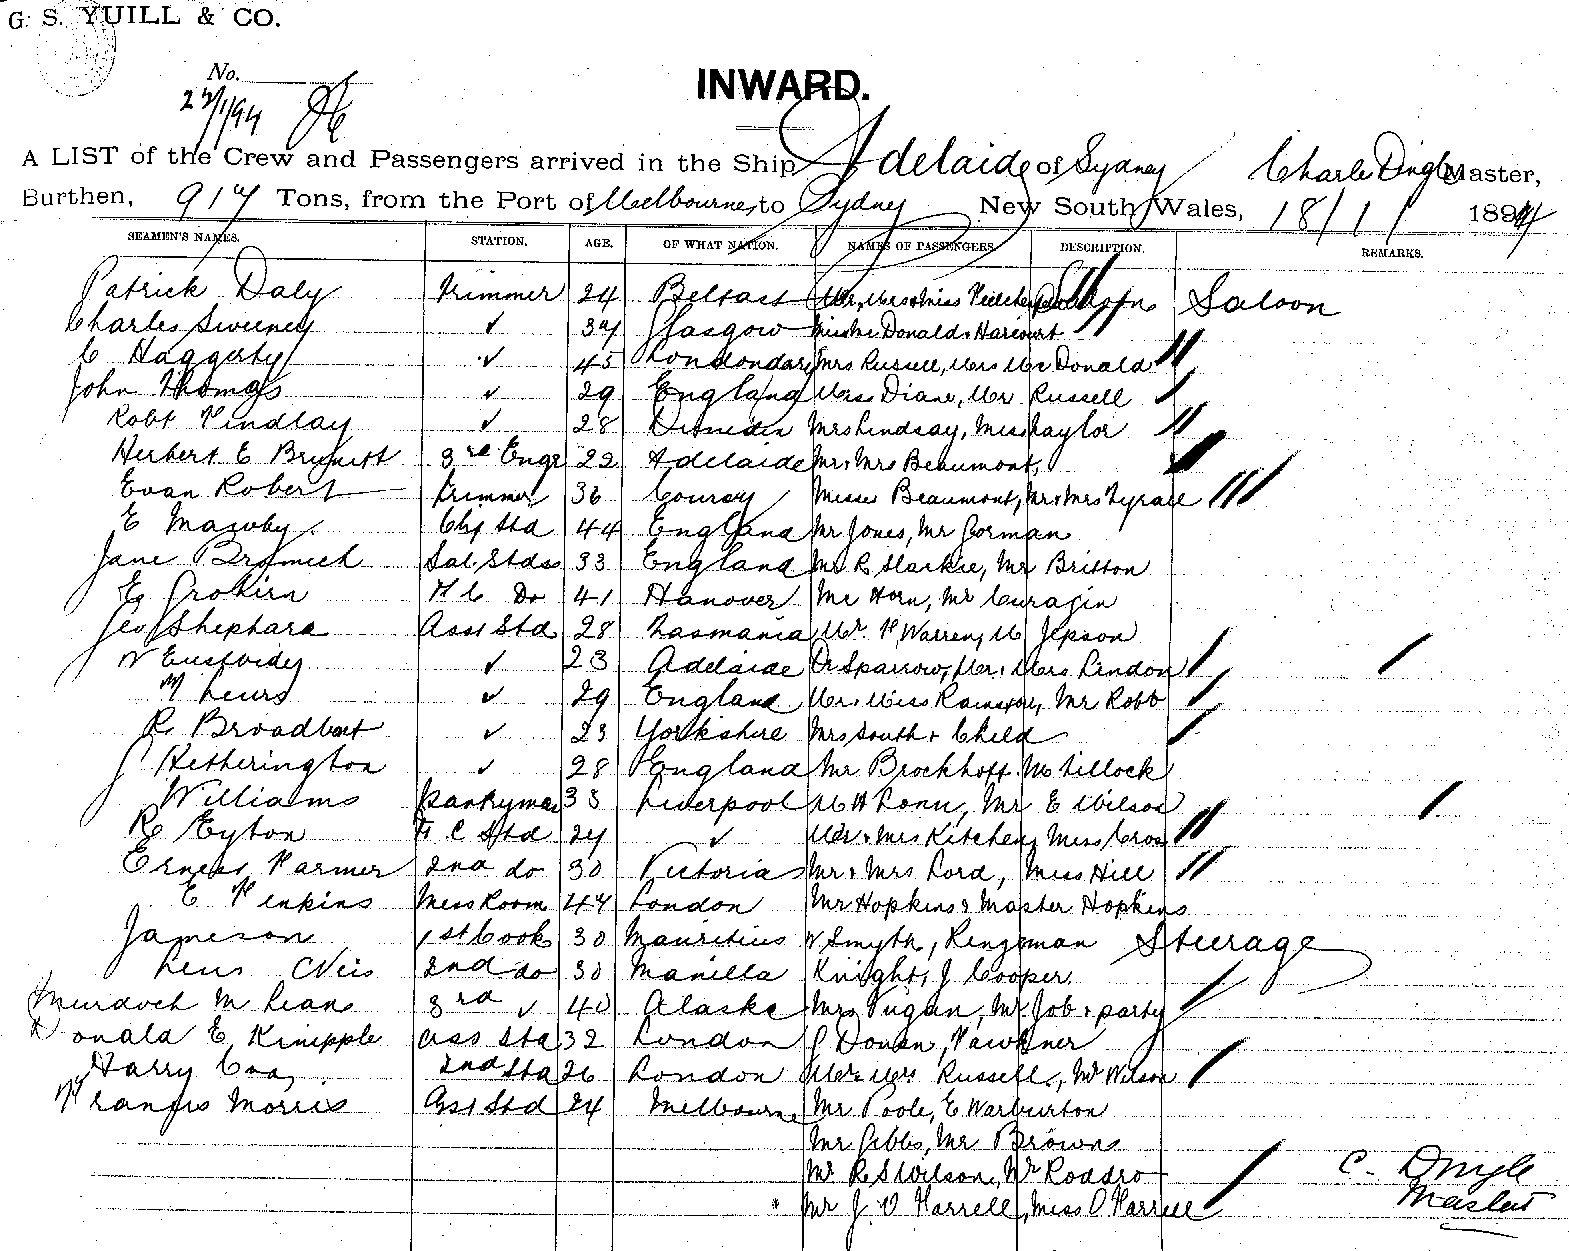 G. S. YUILL & CO.
No.
22/1/94
INWARD.
A LIST of the Crew and Passengers arrived in the Ship Adelaide of Sydney Charles Dingle Master,
Burthen, 917 Tons, from the Port of Melbourne to Sydney New South Wales, 18/1/ 1894
SEAMEN'S NAMES. STATION. AGE. OF WHAT NATION. NAMES OF PASSENGERS DESCRIPTION. REMARKS.
Patrick Daly Trimmer 24 Belfast Mr, Mrs & Miss Saloon
Charles Sweeney ✓ 37 Glasgow Donald & Harcourt
C Haggerty ✓ 45 Londondary Mrs Russell, Mrs McDonald
John Thomas ✓ 29 England Miss Diane, Mr Russell
Robt Findlay ✓ 28 Dunedin Mrs Lindsay, Miss Taylor
Herbert E 3rd Engr 22 Adelaide Mr & Mrs Beaumont,
Evan Robert Trimmer 36 Conway Misses Beaumont, Mr & Mrs Tyrall
E Mawby Chf Std 44 England Mr Jones, Mr Gorman
Jane Bromich Sal. Stdss 33 England Mr R Starkie, Mr Britton
E Grokirn F C Do 41 Hanover Mr Horn, Mr Curagin
Geo Shephard Asst Std 28 Tasmania Mr F Warren, M Jepson
✓ 23 Adelaide Dr Sparrow, Mr & Mrs Lindon
✓ 29 England Mr & Miss Ramsay, Mr Robb
R Broadbent ✓ 23 Yorkshire Mrs South & Child
J Hetherington ✓ 28 England Mr Brockhoff Mr Tillock
Williams Pantryman 33 Liverpool Mr E Wilson
R Eyton F C Std 24 ✓ Mr & Mrs Kitchen, Miss Cross
Ernest Farmer 2nd do 30 Victoria Mr & Mrs Lord, Miss Hill
E Jenkins Mess Room 44 London Mr Hopkins & Master Hopkins
Jameson 1st Cook 30 Mauritius W Smyth, Kingsman Steerage
2nd do 30 Manilla Knight, J Cooper.
Murdoch McLean 3rd ✓ 40 Alaska Mrs Fugan, Mr Job & party
Donald E Knipple Ass Std 32 London J Donan, Fawkner
Harry Cox 2nd Std 26 London Mr & Mrs Russell, Mr Wilson
Francis Morris Asst Std 24 Melbourne Mr Poole, E Warburton
Mr Gibbs, Mr Browns
Mr R S Wilson, Mr Roddro
Mr J. O'Farrell, Miss O'Farrell
C. Dingle
Master